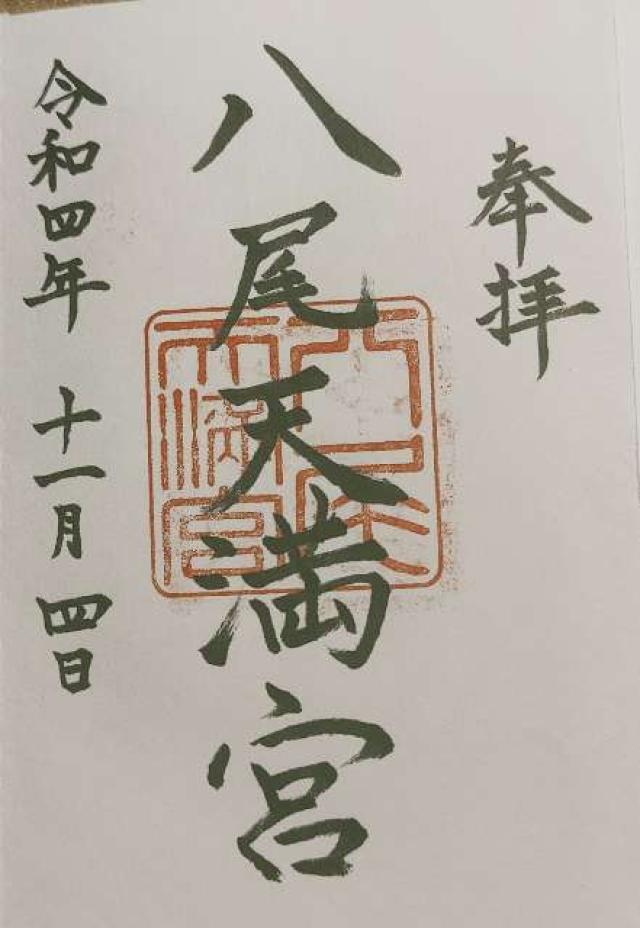 奉拝
八尾天満宮
令和四年十一月四日